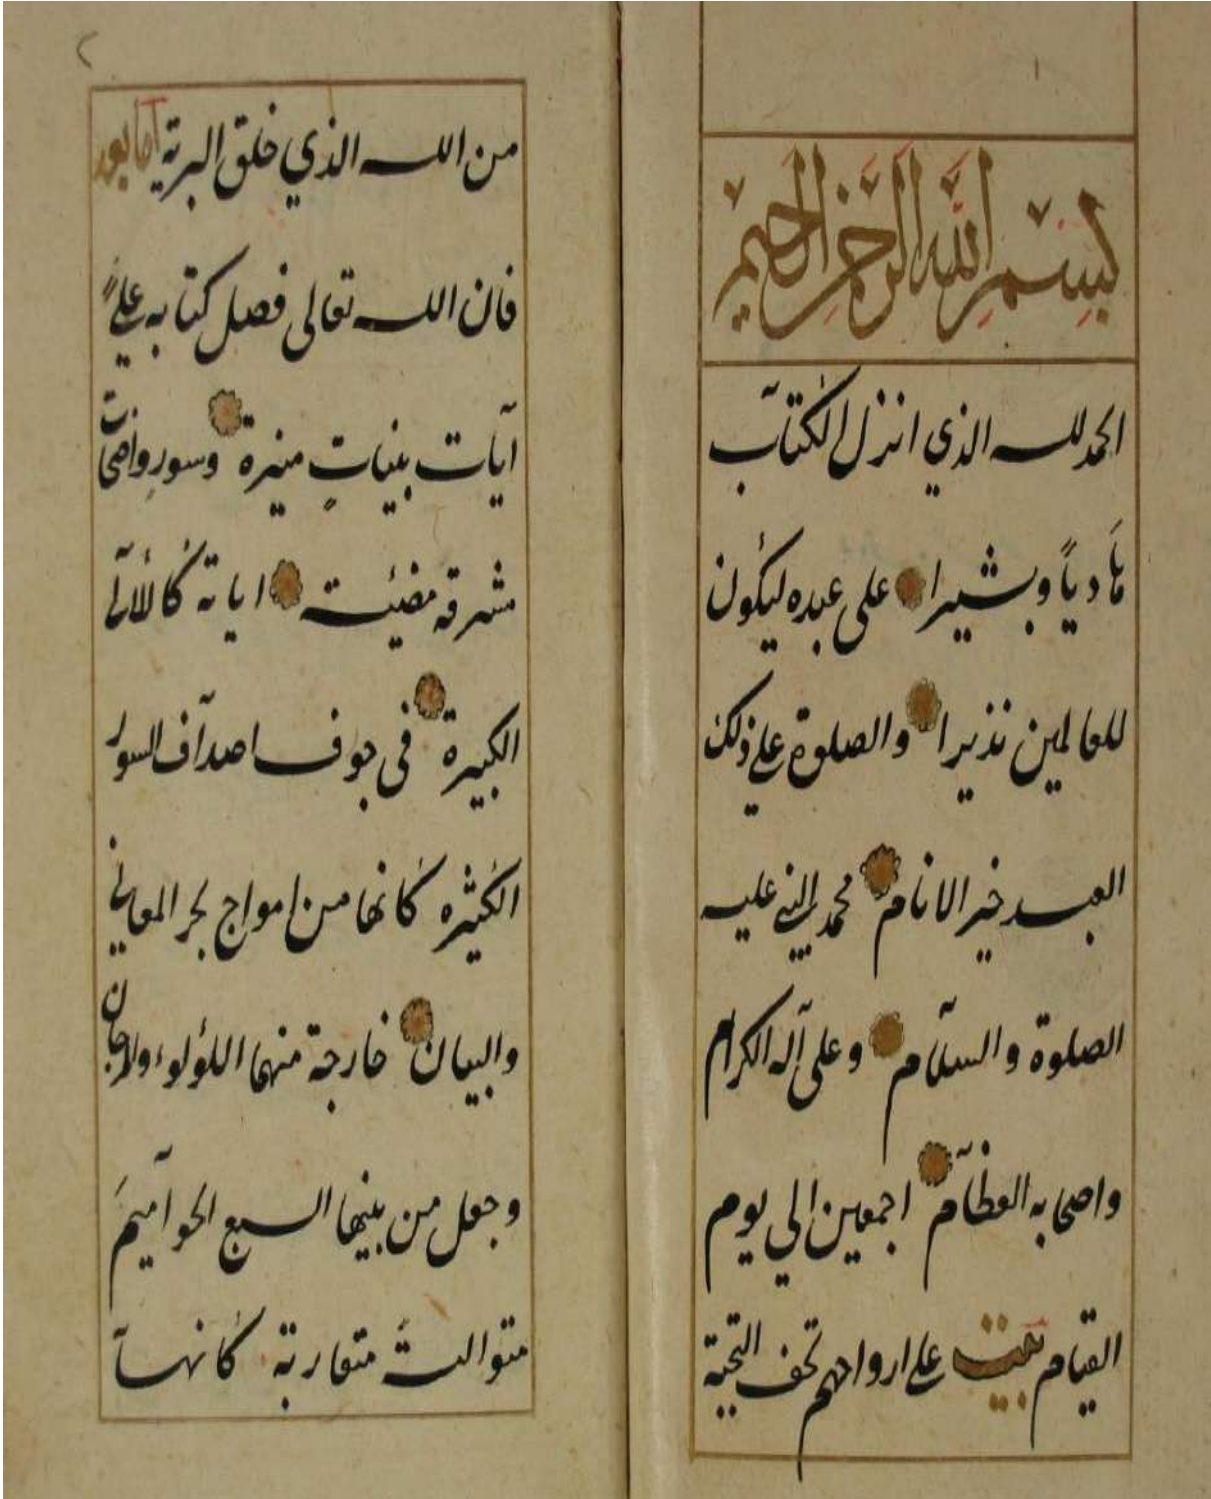 بسم الله الرحمن الرحيم
الحمد لله الذي انزل الكتاب
هاديا وبشيرا على عبده ليكون
للعالمين نذيرا والصلوة على ذلك
العبد خير الانام محمد النبي عليه
الصلوة والسلام وعلى آله الكرام
واصحابه العظام اجمعين الي يوم
القيام بيت على ارواحهم تحف التحية
من الله الذي خلق البرية اما بعد
فان الله تعالى فصل كتابه على
آيات بينات منيرة وسور واضحات
مشرقه مضئية اياته كالألآلى
الكبيرة فى جوف اصداف السور
الكثيره كانها من امواج بحر المعاني
والبيان خارجة منهما اللؤلوء والمرجان
وجعل من بينها السبع الحواميم
متوالية متقاربة كانها